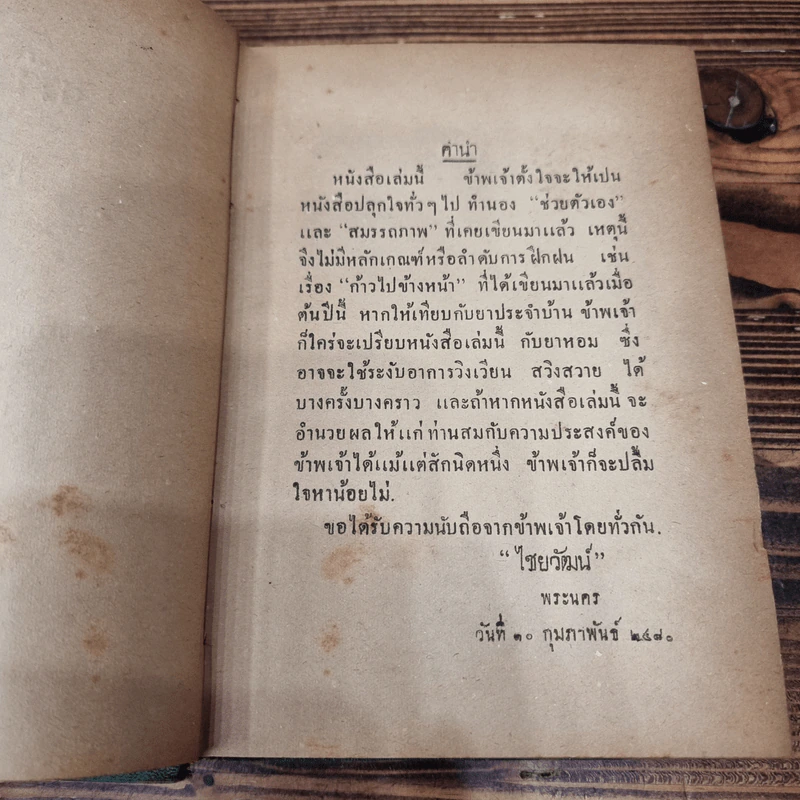 คำนำ
หนังสือเล่มนี้ ข้าพเจ้าตั้งใจจะให้เปน
หนังสือปลุกใจทั่วๆไป ทำนอง “ช่วยตัวเอง”
และ “สมรรถภาพ” ที่เคยเขียนมาแล้ว เหตุนี้
จึงไม่มีหลักเกณฑ์หรือลำดับการฝึกฝน เช่น
เรื่อง “ก้าวไปข้างหน้า” ที่ได้เขียนมาแล้วเมื่อ
ต้นปีนี้ หากให้เทียบกับยาประจำบ้าน ข้าพเจ้า
ก็ใคร่จะเปรียบหนังสือเล่มนี้ กับยาหอม ซึ่ง
อาจจะใช้ระงับอาการวิงเวียน สวิงสวาย ได้
บางครั้งบางคราว และถ้าหากหนังสือเล่มนี้ จะ
อำนวยผลให้แก่ท่านสมกับความประสงค์ของ
ข้าพเจ้าได้แม้แต่สักนิดหนึ่ง ข้าพเจ้าก็จะปลื้ม
ใจหาน้อยไม่.
ขอได้รับความนับถือจากข้าพเจ้าโดยทั่วกัน.
“ไชยวัฒน์”
พระนคร
วันที่ ๑๐ กุมภาพันธ์ ๒๔๘๐